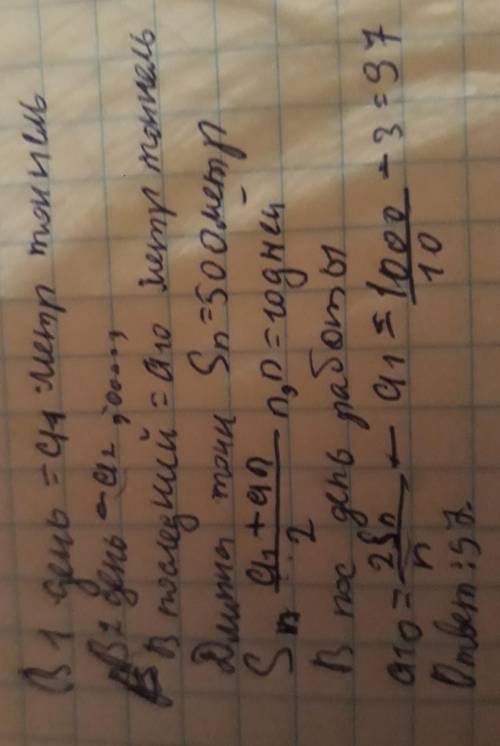 В 1 день = a1 метр тоннель
В 2 день = a2, ......,
В последний = a10 метр тоннель
Длинна тонн Sn = 500 метр
Sn = a1 + an / 2 n, n = 10 дней
В пос день работы
a10 = 2Sn / n - a1 = 1000 / 10 - 3 = 97
Ответ: 97.